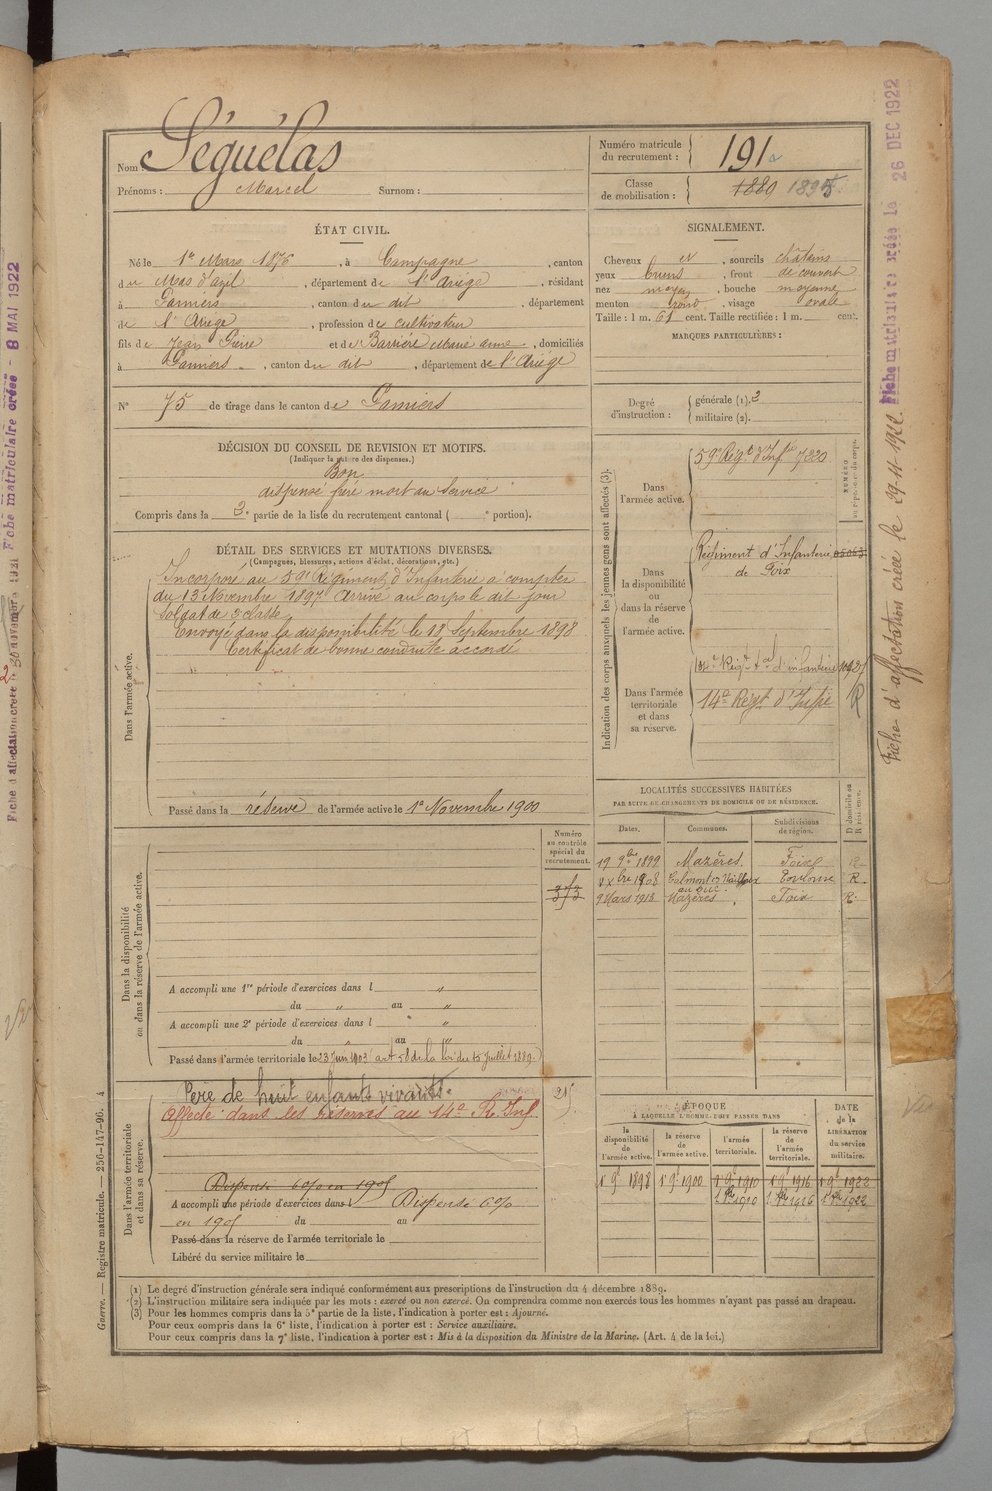 Nom Séguélas
Prénoms : Marcel Surnom :
Numéro matricule du recrutement : 191
Classe de mobilisation : 1880 1895
ÉTAT CIVIL.
Né le 1er Mars 1876, à Campagne, canton
du Mas d'azil, département de l'Ariège, résidant
à Pamiers, canton du dit, département
de l'Ariège, profession de cultivateur
fils de Jean Pierre et de Barrière Marie anne, domiciliés
à Pamiers, canton du dit, département de l'Ariège
N° 75 de tirage dans le canton de Pamiers
SIGNALEMENT.
Cheveux et, sourcils châtains
yeux bruns, front découvert
nez moyen, bouche moyenne
menton rond, visage ovale
Taille : 1 m. 61 cent. Taille rectifiée : 1 m. cent.
MARQUES PARTICULIÈRES :
Degré d'instruction : générale (1). 3
militaire (2).
DÉCISION DU CONSEIL DE REVISION ET MOTIFS.
(Indiquer la nature des dispenses.)
Bon
dispensé frère mort au service
Compris dans la 2e partie de la liste du recrutement cantonal ( e portion).
DÉTAIL DES SERVICES ET MUTATIONS DIVERSES.
(Campagnes, blessures, actions d'éclat, décorations, etc.)
Dans l'armée active.
Incorporé au 59e Régiment d'Infanterie à compter
du 13 Novembre 1897. Arrivé au corps le dit jour
soldat de 2e classe
Envoyé dans la disponibilité le 18 Septembre 1898
Certificat de bonne conduite accordé
Passé dans la réserve de l'armée active le 1er Novembre 1900
Indication des corps auxquels les jeunes gens sont affectés (3).
NUMÉRO
Dans l'armée active.
59e Régt d'Infie 7820
Dans la disponibilité ou dans la réserve de l'armée active.
Régiment d'Infanterie
de Foix
Dans l'armée territoriale et dans sa réserve.
134e Régt tal d'infanterie
14e Régt d'Infie R
LOCALITÉS SUCCESSIVES HABITÉES
PAR SUITE DE CHANGEMENTS DE DOMICILE OU DE RÉSIDENCE.
Dates. Communes. Subdivisions de région. D domicile ou R résidence.
19 9bre 1899 Mazères. Foix R
xbre 1908 Calmont Nailloux Toulouse R.
9 Mars 1913 Mazères. Foix R.
Numéro au contrôle spécial du recrutement.
Dans la disponibilité ou dans la réserve de l'armée active.
A accompli une 1re période d'exercices dans l "
du " au "
A accompli une 2e période d'exercices dans l "
du " au "
Passé dans l'armée territoriale le 23 Juin 1903 (art 58 de la loi du 15 Juillet 1889.)
Dans l'armée territoriale et dans sa réserve.
Père de huit enfants vivants.
Affecté dans les réserves au 14e R. Inf
Dispensé 6% en 190
A accompli une période d'exercices dans l Dispensé 6%
en 190 du au
Passé dans la réserve de l'armée territoriale le
Libéré du service militaire le
ÉPOQUE
À LAQUELLE L'HOMME DOIT PASSER DANS
DATE de la LIBÉRATION du service militaire.
la disponibilité de l'armée active. la réserve de l'armée active. l'armée territoriale. la réserve de l'armée territoriale.
1er 9bre 1898 1er 9bre 1900 1er 9bre 1910 1er 9bre 1916 1er 9bre 1922
1910 1916 1922
(1) Le degré d'instruction générale sera indiqué conformément aux prescriptions de l'instruction du 4 décembre 1889.
(2) L'instruction militaire sera indiquée par les mots : exercé ou non exercé. On comprendra comme non exercés tous les hommes n'ayant pas passé au drapeau.
(3) Pour les hommes compris dans la 5e partie de la liste, l'indication à porter est : Ajourné.
Pour ceux compris dans la 6e liste, l'indication à porter est : Service auxiliaire.
Pour ceux compris dans la 7e liste, l'indication à porter est : Mis à la disposition du Ministre de la Marine. (Art. 4 de la loi.)
Guerre. — Registre matricule. — 256-147-96. 4
Fiche matriculaire créée le 26 DEC 1922
Fiche d'affectation créée le 29-11-1922.
Fiche matriculaire créée - 8 MAI 1922